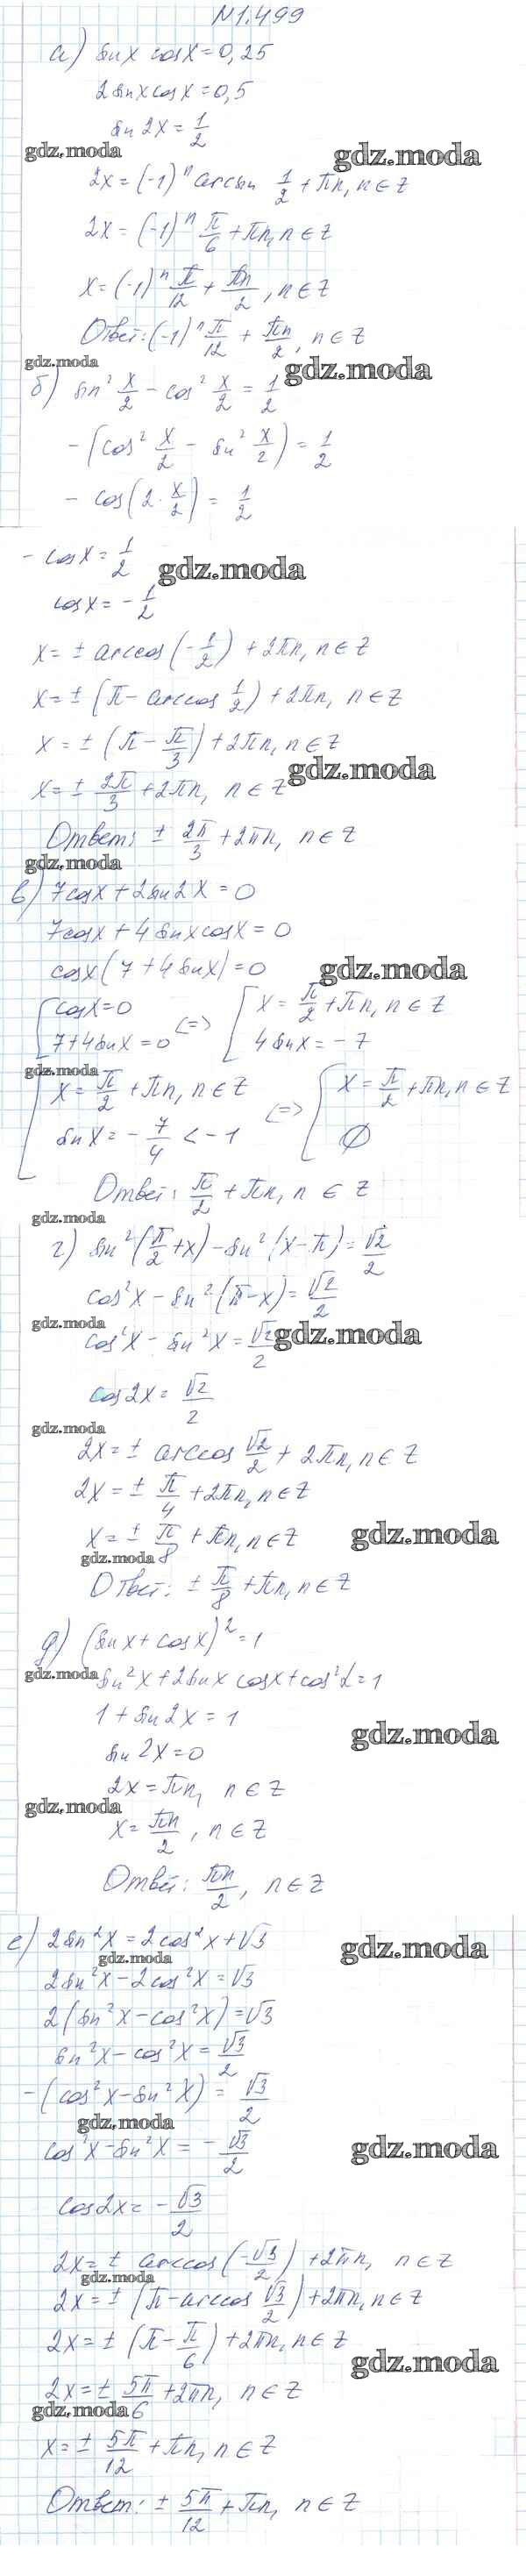 N1.499
а) sin x cos x = 0,25
2 sin x cos x = 0,5
sin 2x = 1/2
gdz.moda
gdz.moda
2x = (-1)^n arcsin 1/2 + πn, n ∈ Z
2x = (-1)^n π/6 + πn, n ∈ Z
x = (-1)^n π/12 + πn/2, n ∈ Z
Ответ: (-1)^n π/12 + πn/2, n ∈ Z
gdz.moda
gdz.moda
б) sin² x/2 - cos² x/2 = 1/2
-(cos² x/2 - sin² x/2) = 1/2
- cos(2·x/2) = 1/2
- cos x = 1/2
gdz.moda
cos x = - 1/2
x = ± arccos(-1/2) + 2πn, n ∈ Z
x = ± (π - arccos 1/2) + 2πn, n ∈ Z
x = ± (π - π/3) + 2πn, n ∈ Z
gdz.moda
x = ± 2π/3 + 2πn, n ∈ Z
Ответ: ± 2π/3 + 2πn, n ∈ Z
gdz.moda
в) 7cos x + 2 sin 2x = 0
7cos x + 4 sin x cos x = 0
cos x (7 + 4 sin x) = 0
gdz.moda
[ cos x = 0 <=> [ x = π/2 + πn, n ∈ Z
7 + 4 sin x = 0 4 sin x = - 7
gdz.moda
[ x = π/2 + πn, n ∈ Z <=> [ x = π/2 + πn, n ∈ Z
sin x = - 7/4 < -1 ∅
Ответ: π/2 + πn, n ∈ Z
gdz.moda
г) sin²(π/2 + x) - sin²(x - π) = √2/2
cos²x - sin²(π - x) = √2/2
gdz.moda
cos²x - sin²x = √2/2
gdz.moda
cos 2x = √2/2
gdz.moda
2x = ± arccos √2/2 + 2πn, n ∈ Z
2x = ± π/4 + 2πn, n ∈ Z
x = ± π/8 + πn, n ∈ Z
gdz.moda
gdz.moda
Ответ: ± π/8 + πn, n ∈ Z
д) (sin x + cos x)² = 1
gdz.moda
sin²x + 2 sin x cos x + cos²x = 1
1 + sin 2x = 1
gdz.moda
sin 2x = 0
2x = πn, n ∈ Z
gdz.moda
x = πn/2, n ∈ Z
Ответ: πn/2, n ∈ Z
е) 2 sin²x = 2cos²x + √3
gdz.moda
gdz.moda
2 sin²x - 2cos²x = √3
2(sin²x - cos²x) = √3
sin²x - cos²x = √3/2
-(cos²x - sin²x) = √3/2
gdz.moda
cos²x - sin²x = - √3/2
gdz.moda
cos 2x = - √3/2
2x = ± arccos(-√3/2) + 2πn, n ∈ Z
gdz.moda
2x = ± (π - arccos √3/2) + 2πn, n ∈ Z
2x = ± (π - π/6) + 2πn, n ∈ Z
gdz.moda
2x = ± 5π/6 + 2πn, n ∈ Z
gdz.moda
x = ± 5π/12 + πn, n ∈ Z
Ответ: ± 5π/12 + πn, n ∈ Z